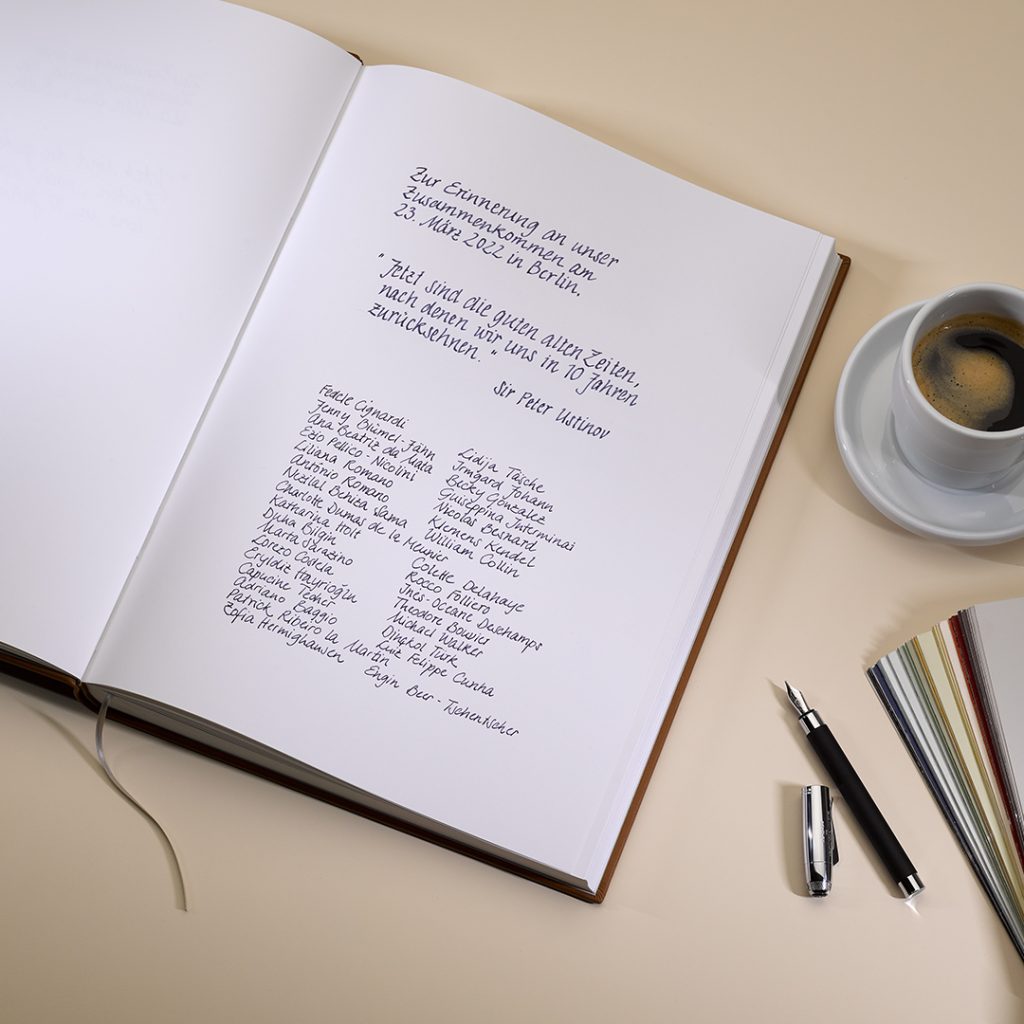 Zur Erinnerung an unser
Zusammenkommen am
23. März 2022 in Berlin.
"Jetzt sind die guten alten Zeiten,
nach denen wir uns in 10 Jahren
zurücksehnen."
Sir Peter Ustinov
Fedele Cignardi
Jenny Blümel-Jähn
Ana Beatriz da Mata
Ezio Pellico-Nicolini
Liliana Romano
António Romano
Nezilal Beniza Sama
Charlotte Dumas de la Meunier
Katharina Holt
Duha Bilgin
Marta Sarazino
Lorezo Costela
Eryldiz Hayrioğlu
Capucine Teher
Adriano Baggio
Patrick Ribeiro la Martin
Zofia Hermighausen
Lidija Tasche
Irmgard Johann
Becky Gonzalez
Guiseppina Interminai
Nicolas Besnard
Klemens Kendel
William Collin
Colette Delahaye
Rocco Folliero
Inès-Oceane Deschamps
Theodore Bouvier
Michael Walker
Dinçkol Türk
Luiz Felippe Cunha
Engin Beer-Tschentscher